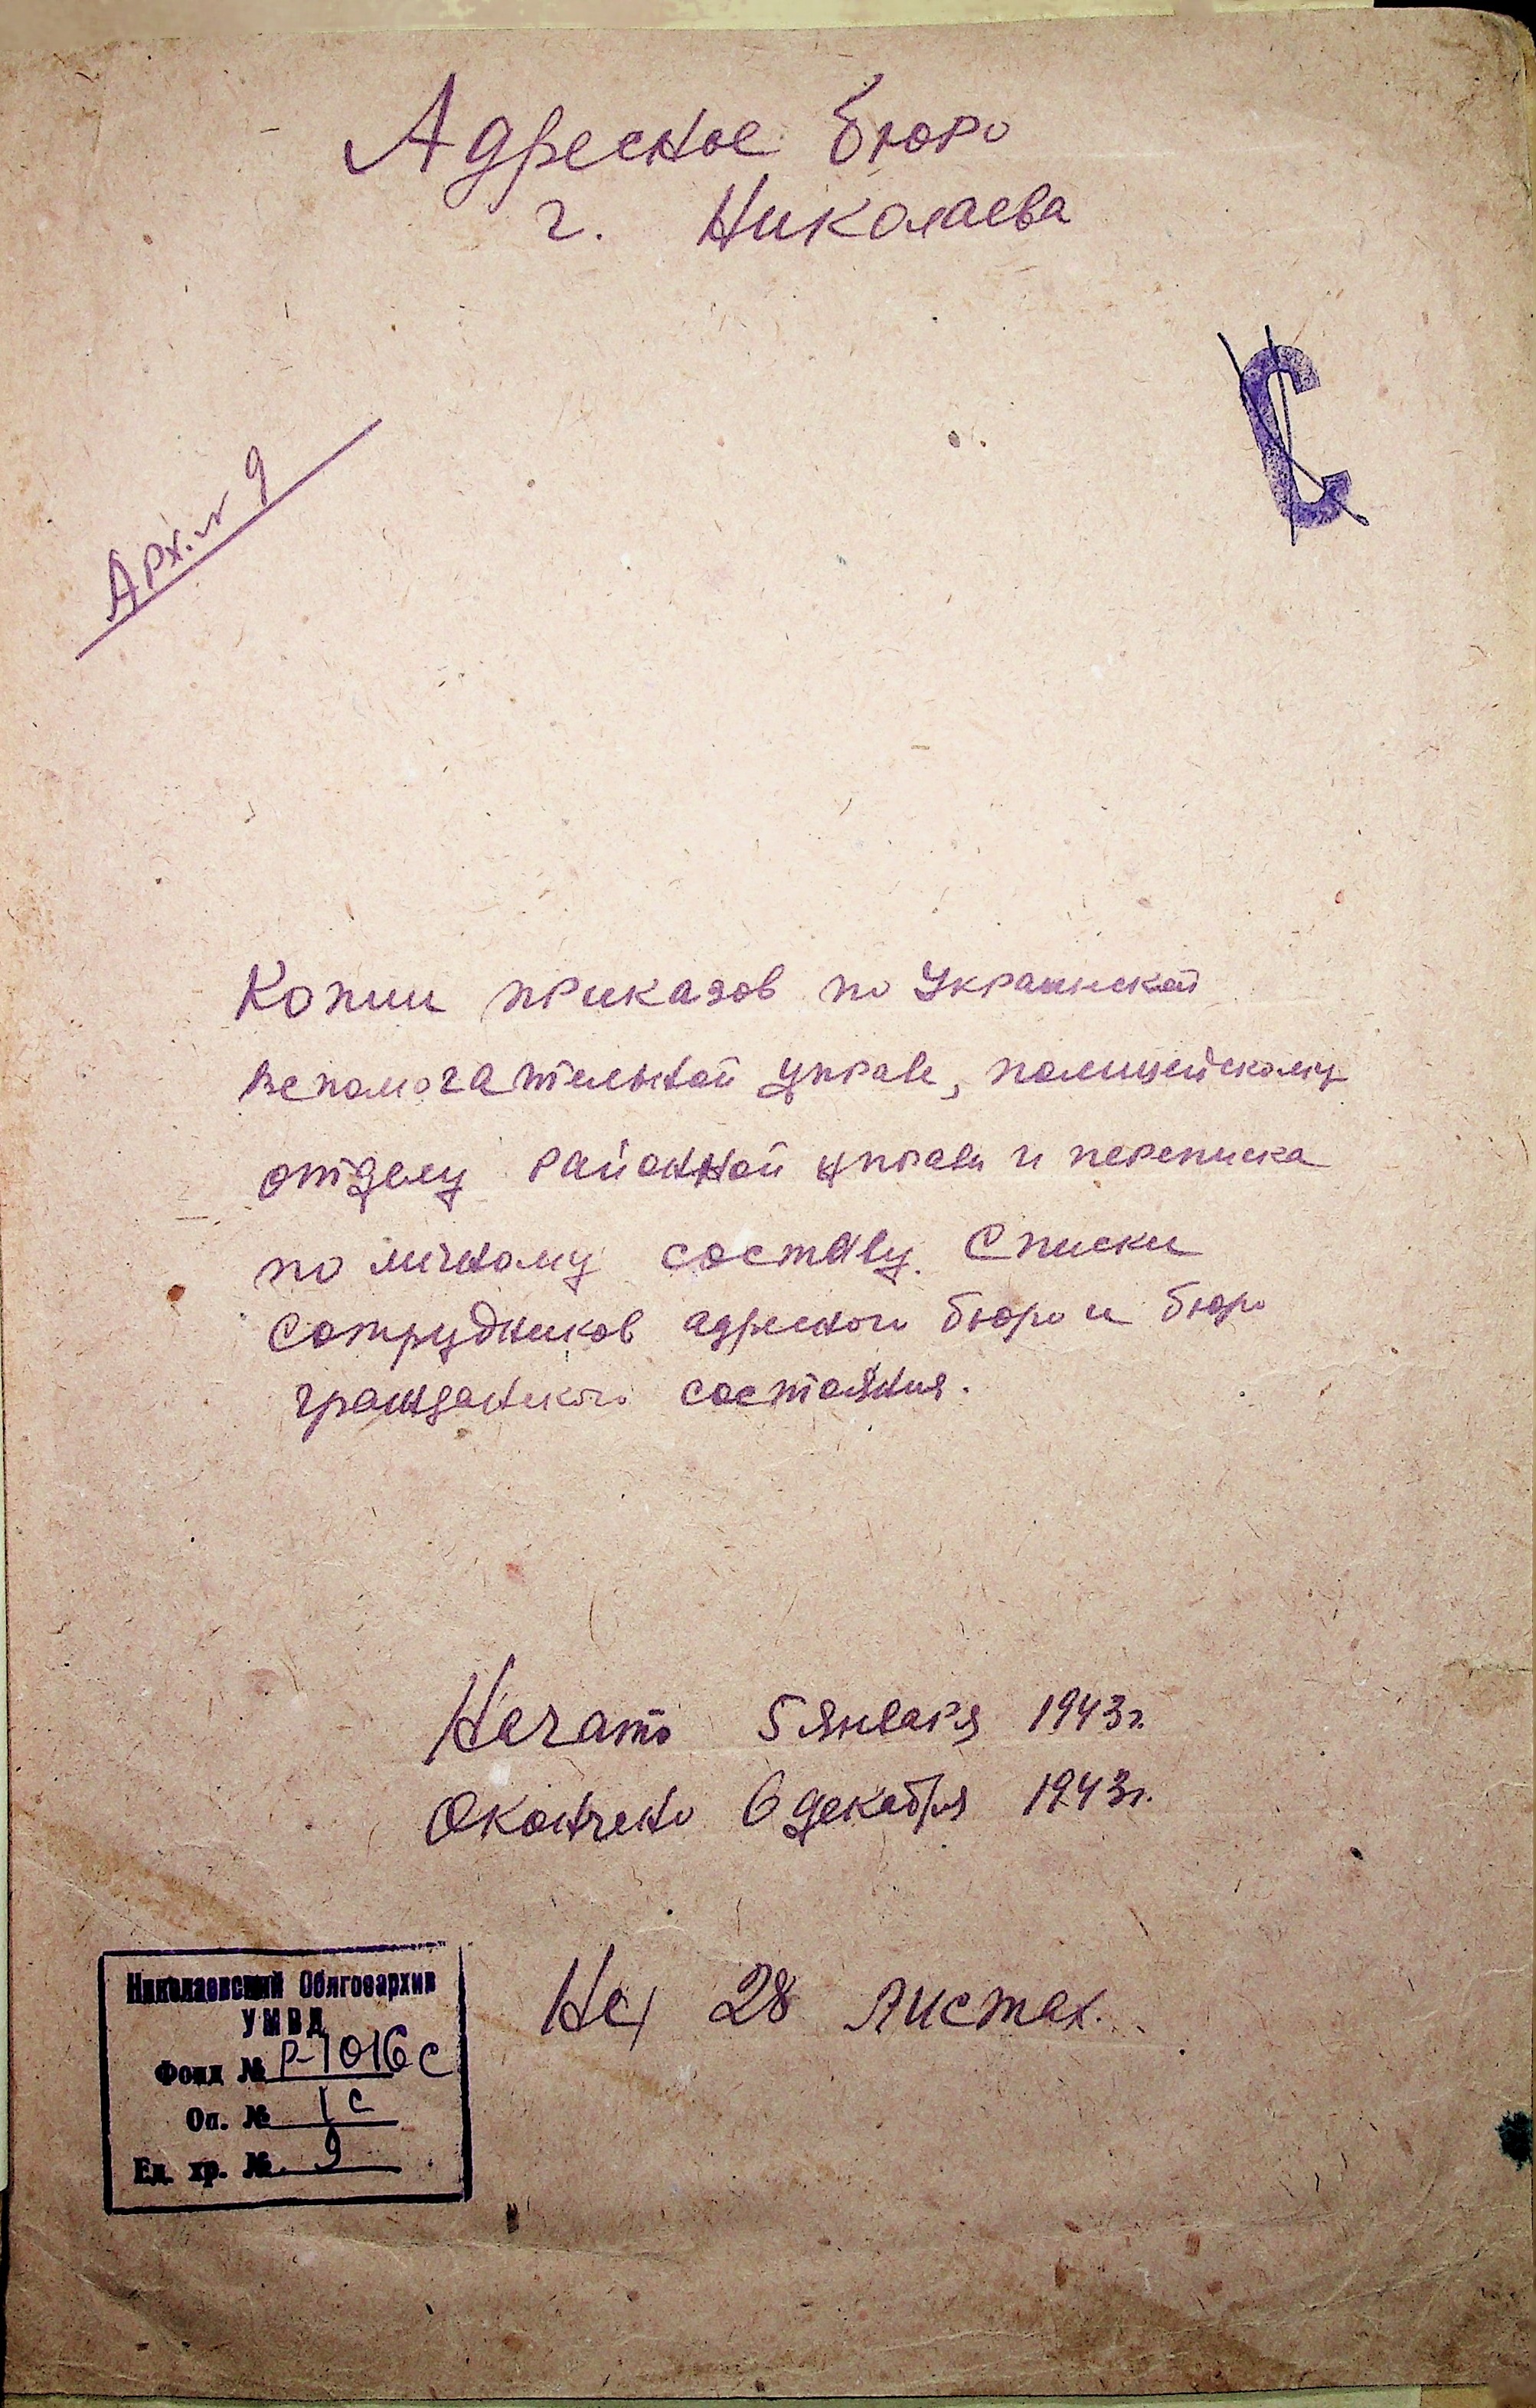 Адресное бюро
г. Николаева
С
Арх. № 9
Копии приказов по Украинской
вспомогательной управе, полицейскому
отделу районной управы и переписка
по личному составу. Списки
сотрудников адресного бюро и бюро
гражданского состояния.
Начато 5 января 1943 г.
Окончено 6 декабря 1943 г.
На 28 листах.
Николаевский Облгосархив
УМВД
Фонд № Р-1016 с
Оп. № 1 с
Ед. хр. № 9